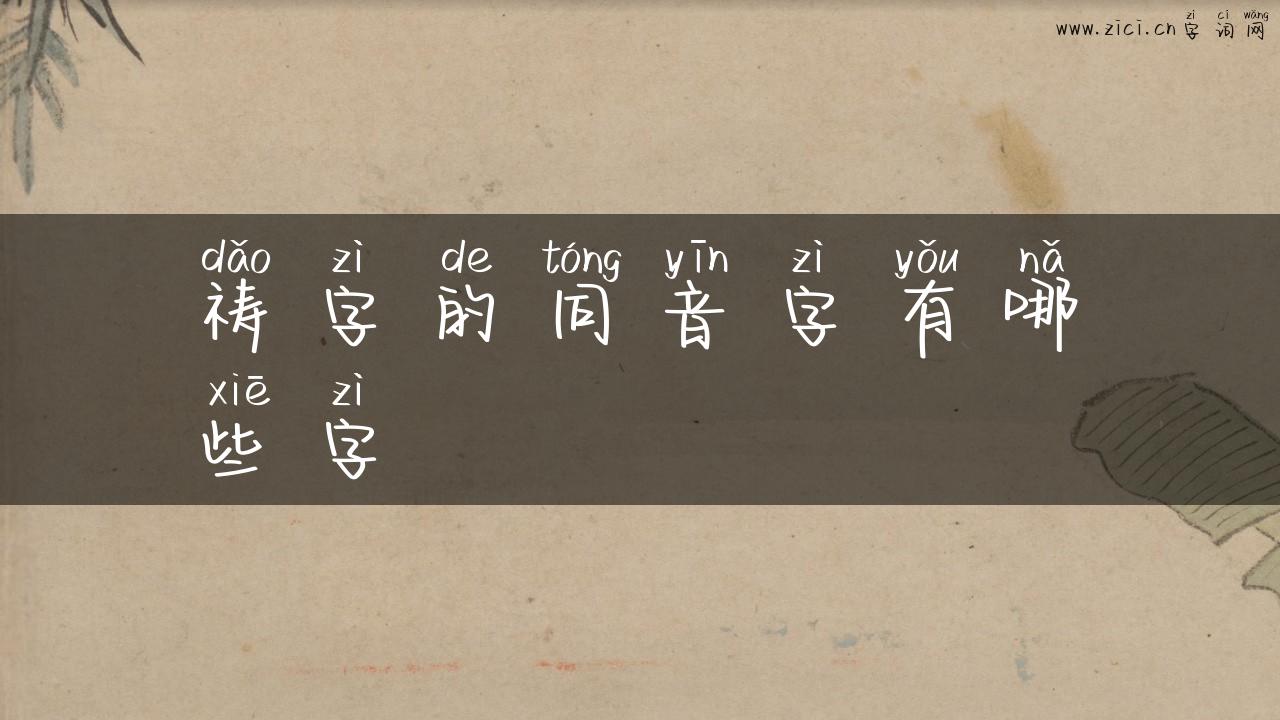 zì cí wǎng
www.zici.cn 字词网
dǎo zì de tóng yīn zì yǒu nǎ
祷字的同音字有哪
xiē zì
些字